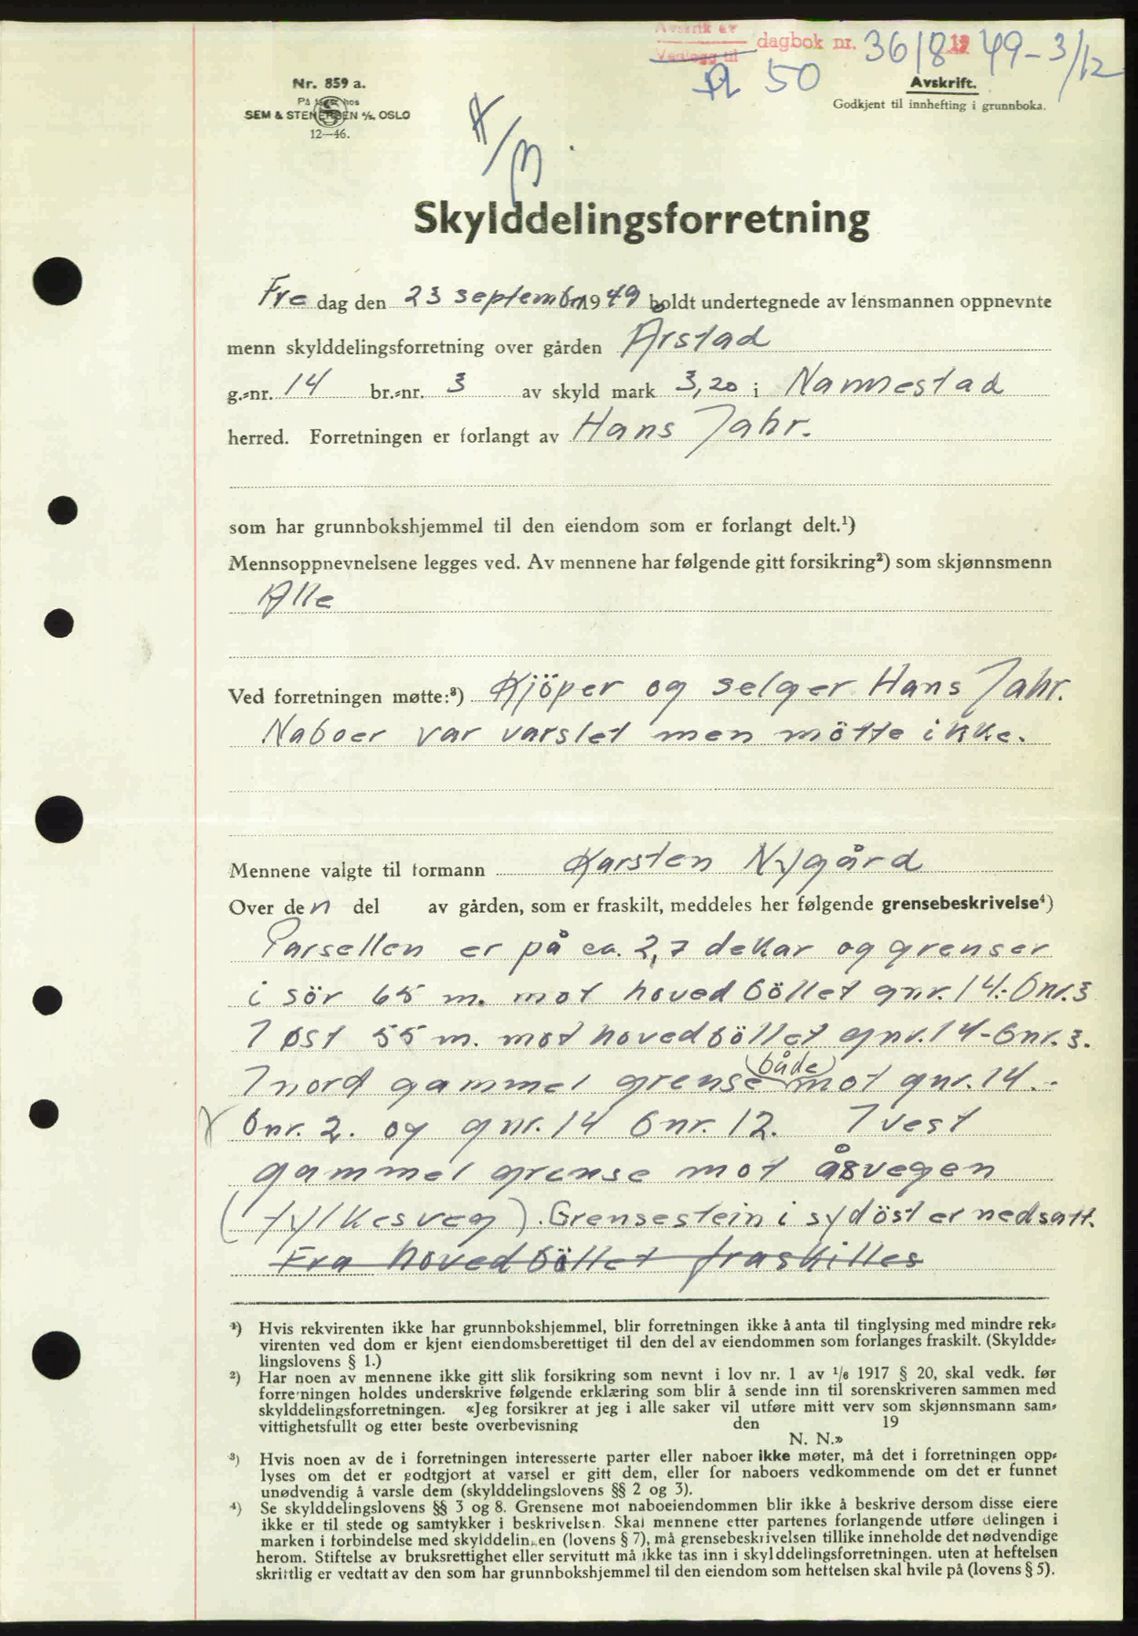 Avskrift av
Vedlegg til
dagbok nr. 3618 1949-3/12
50
Nr. 859 a.
På lager hos
SEM & STENERSEN A/S, OSLO
12—46.
Avskrift.
Godkjent til innhefting i grunnboka.
Skylddelingsforretning
Fre dag den 23 september 1949 holdt undertegnede av lensmannen oppnevnte
menn skylddelingsforretning over gården Årstad
g.-nr. 14 br.-nr. 3 av skyld mark 3,20 i Nannestad
herred. Forretningen er forlangt av Hans Jahr.
som har grunnbokshjemmel til den eiendom som er forlangt delt.¹)
Mennsoppnevnelsene legges ved. Av mennene har følgende gitt forsikring²) som skjønnsmenn
Alle
Ved forretningen møtte:³) Kjöper og selger Hans Jahr.
Naboer var varslet men mötte ikke.
Mennene valgte til formann Karsten Nygård
Over den del av gården, som er fraskilt, meddeles her følgende grensebeskrivelse⁴)
Parsellen er på ca. 2,7 dekar og grenser
i sör 65 m. mot hovedböllet gnr. 14.-bnr. 3
I øst 55 m. mot hovedböllet gnr. 14-bnr. 3.
I nord gammel grense både mot gnr. 14.-
bnr. 2. og gnr. 14 bnr. 12. I vest
gammel grense mot åsvegen
(fylkesveg). Grensestein i sydöst er nedsatt.
Fra hovedböllet fraskilles
¹) Hvis rekvirenten ikke har grunnbokshjemmel, blir forretningen ikke å anta til tinglysing med mindre rek-
virenten ved dom er kjent eiendomsberettiget til den del av eiendommen som forlanges fraskilt. (Skyldde-
lingslovens § 1.)
²) Har noen av mennene ikke gitt slik forsikring som nevnt i lov nr. 1 av 1/6 1917 § 20, skal vedk. før
forretningen holdes underskrive følgende erklæring som blir å sende inn til sorenskriveren sammen med
skylddelingsforretningen. «Jeg forsikrer at jeg i alle saker vil utføre mitt verv som skjønnsmann sam-
vittighetsfullt og etter beste overbevisning den 19
N. N.»
³) Hvis noen av de i forretningen interesserte parter eller naboer ikke møter, må det i forretningen opp-
lyses om det er godtgjort at varsel er gitt dem, eller for naboers vedkommende om det er funnet
unødvendig å varsle dem (skylddelingslovens §§ 2 og 3).
⁴) Se skylddelingslovens §§ 3 og 8. Grensene mot naboeiendommen blir ikke å beskrive dersom disse eiere
ikke er til stede og samtykker i beskrivelsen. Skal mennene etter partenes forlangende utføre delingen i
marken i forbindelse med skylddelingen (lovens § 7), må grensebeskrivelsen tillike inneholde det nødvendige
herom. Stiftelse av bruksrettighet eller servitutt må ikke tas inn i skylddelingsforretningen. uten at heftelsen
skriftlig er vedtatt av den som har grunnbokshjemmel til den eiendom som heftelsen skal hvile på (lovens § 5).